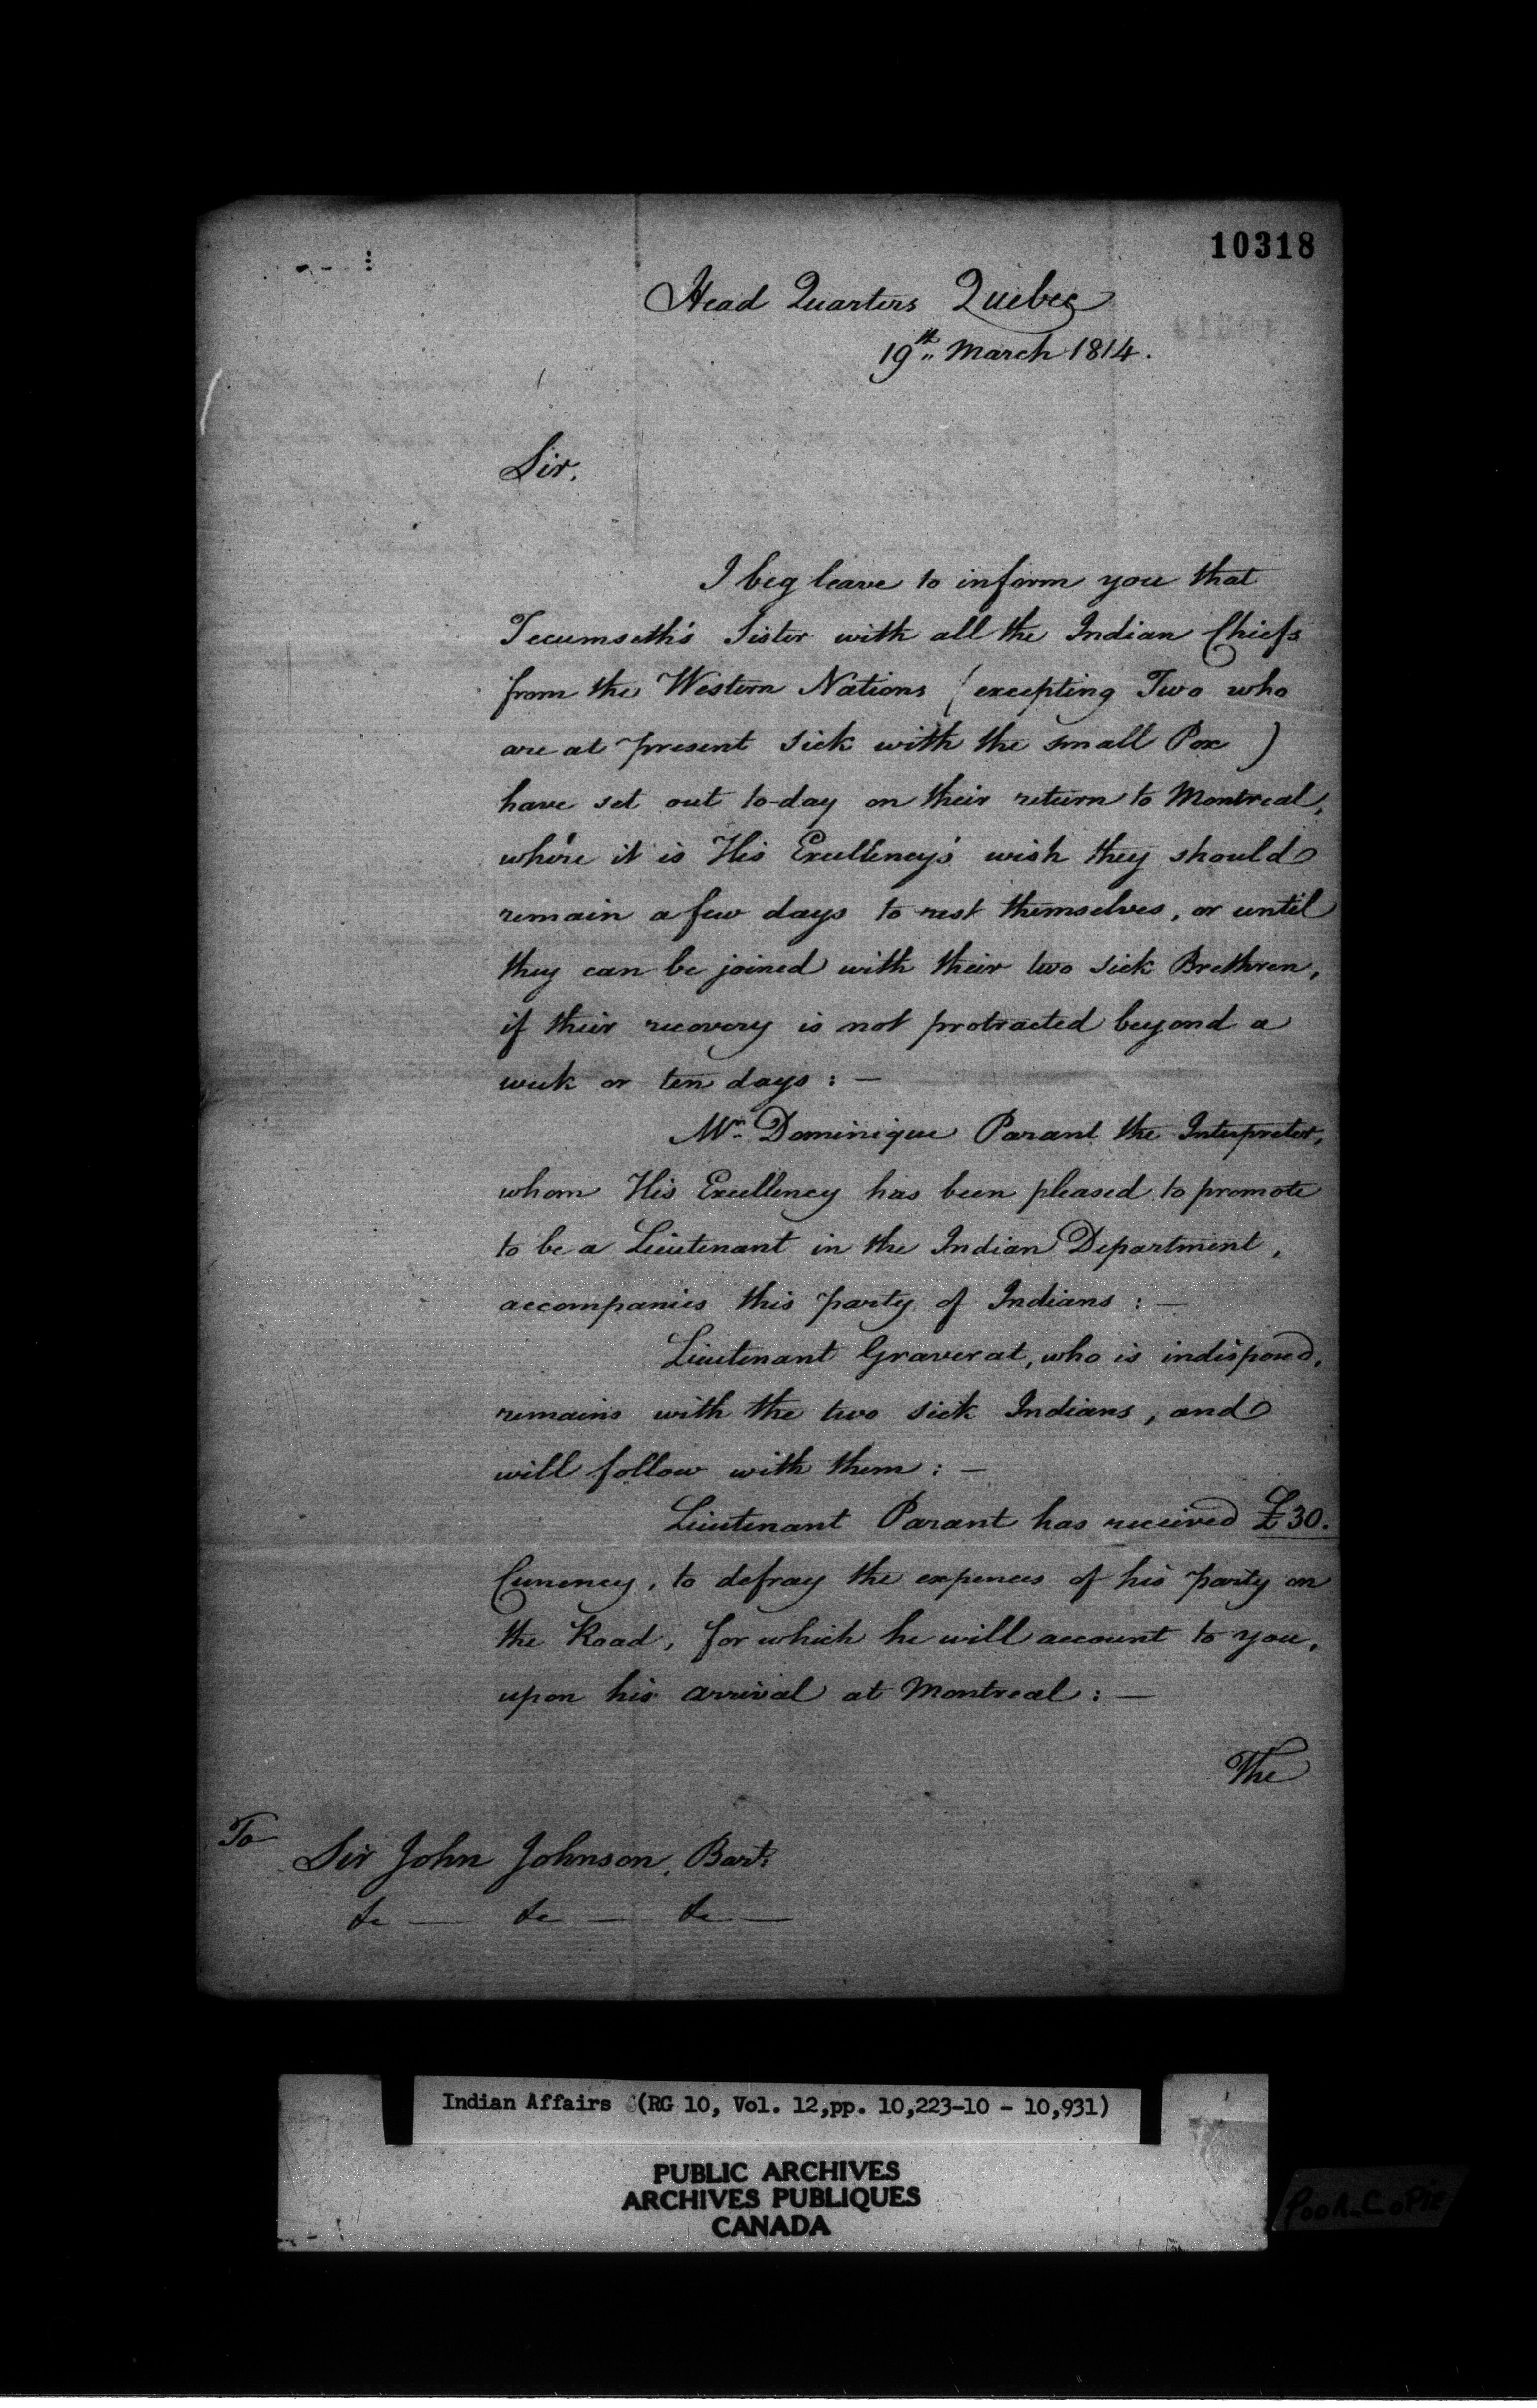 10318
Head Quarters Quebec
19th March 1814.
Sir,
I beg leave to inform you that
Tecumseth's Sister with all the Indian Chiefs
from the Western Nations (excepting Two who
are at present sick with the small Pox)
have set out to-day on their return to Montreal,
where it is His Excellency's wish they should
remain a few days to rest themselves, or until
they can be joined with their two sick Brethren,
if their recovery is not protracted beyond a
week or ten days: —
Mr. Dominique Parant the Interpreter,
whom His Excellency has been pleased to promote
to be a Lieutenant in the Indian Department,
accompanies this party of Indians: —
Lieutenant Graverat, who is indisposed,
remains with the two sick Indians, and
will follow with them: —
Lieutenant Parant has received £30.
Currency, to defray the expences of his party on
the Road, for which he will account to you,
upon his arrival at Montreal: —
The
To
Sir John Johnson, Bart.
&c — &c — &c —
Indian Affairs (RG 10, Vol. 12,pp. 10,223-10 - 10,931)
PUBLIC ARCHIVES
ARCHIVES PUBLIQUES
CANADA
POOR COPIE